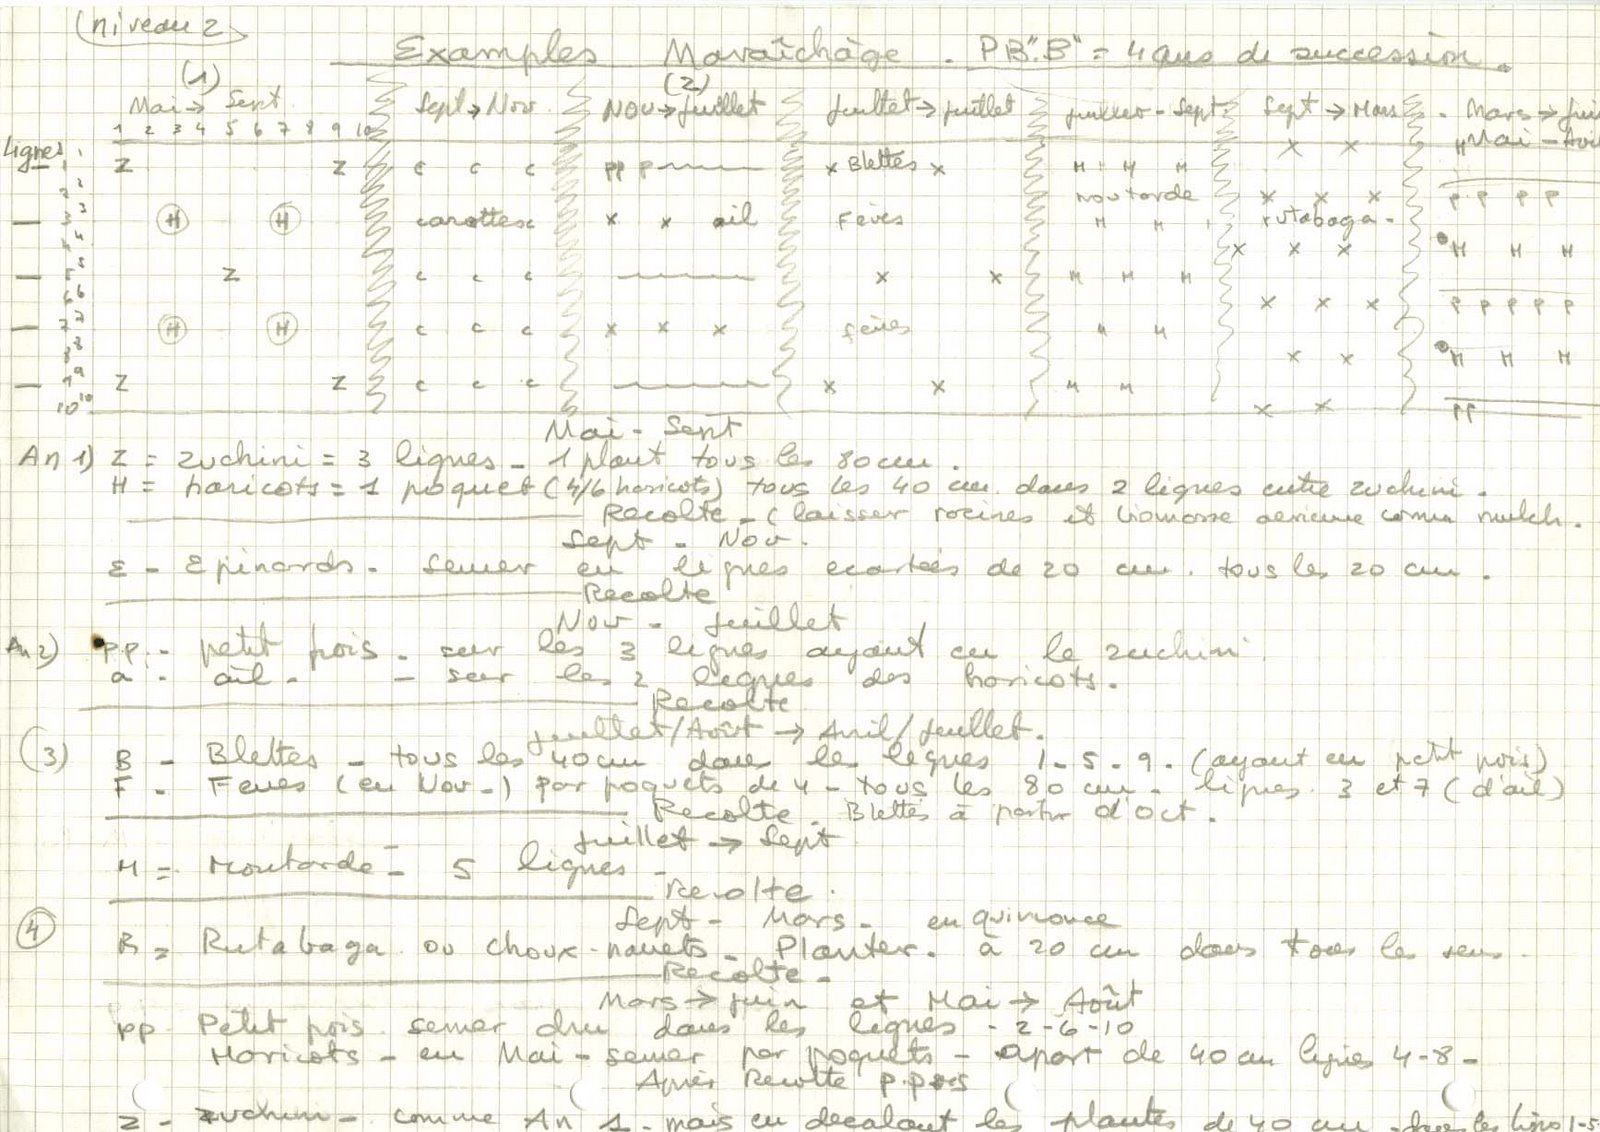 (niveau 2
Examples Maraîchâge - P.B."B" = 4 ans de succession.
(1) (2)
Mai→ Sept Sept→Nov Nov→Juillet Juillet→juillet juillet - Sept Sept→Mars Mars→Jui
1 2 3 4 5 6 7 8 9 10 Mai - Aoû
Lignes
Z Z c c c pp p x Blettes x M M M x x
moutarde x x x p p p p
H H carottes c x x ail Feves M M rutabaga -
x x x H H H
Z c c c x x M M M
x x x p p p p p
H H c c c x x x feves M M
x x H H H
Z Z c c c x x M M
10 x x pp
Mai - Sept
An 1) Z = zuchini = 3 lignes - 1 plant tous les 80 cm.
H = haricots = 1 poquet (4/6 haricots) tous les 40 cm dans 2 lignes entre zuchini.
Recolte - (laisser racines et biomasse aerienne comme mulch.
Sept - Nov.
E - Epinards - semer en lignes ecartées de 20 cm. tous les 20 cm.
Recolte
Nov - Juillet
An 2) pp. - petit pois - sur les 3 lignes ayant eu le zuchini.
a - ail - - sur les 2 lignes des haricots.
Recolte
Juillet/Août → Avril/Juillet.
(3) B - Blettes - tous les 40cm dans les lignes 1-5-9. (ayant eu petit pois)
F - Feves (en Nov-) par poquets de 4 - tous les 80 cm - lignes 3 et 7 (d'ail)
Recolte - Blettes à partir d'oct.
Juillet → Sept
M = Moutarde - 5 lignes -
Recolte.
Sept - Mars - en quinconce
4 R = Rutabaga ou choux-navets - Planter. à 20 cm dans tous les sens.
Recolte -
Mars→juin et Mai→ Août
pp Petit pois semer dru dans les lignes - 2-6-10
Haricots - en Mai - semer par poquets - apart de 40 cm lignes 4-8 -
Après Recolte p.pois
Z - zuchini - comme An 1 - mais en decalant les plantes de 40 cm - dans les lignes 1-5-